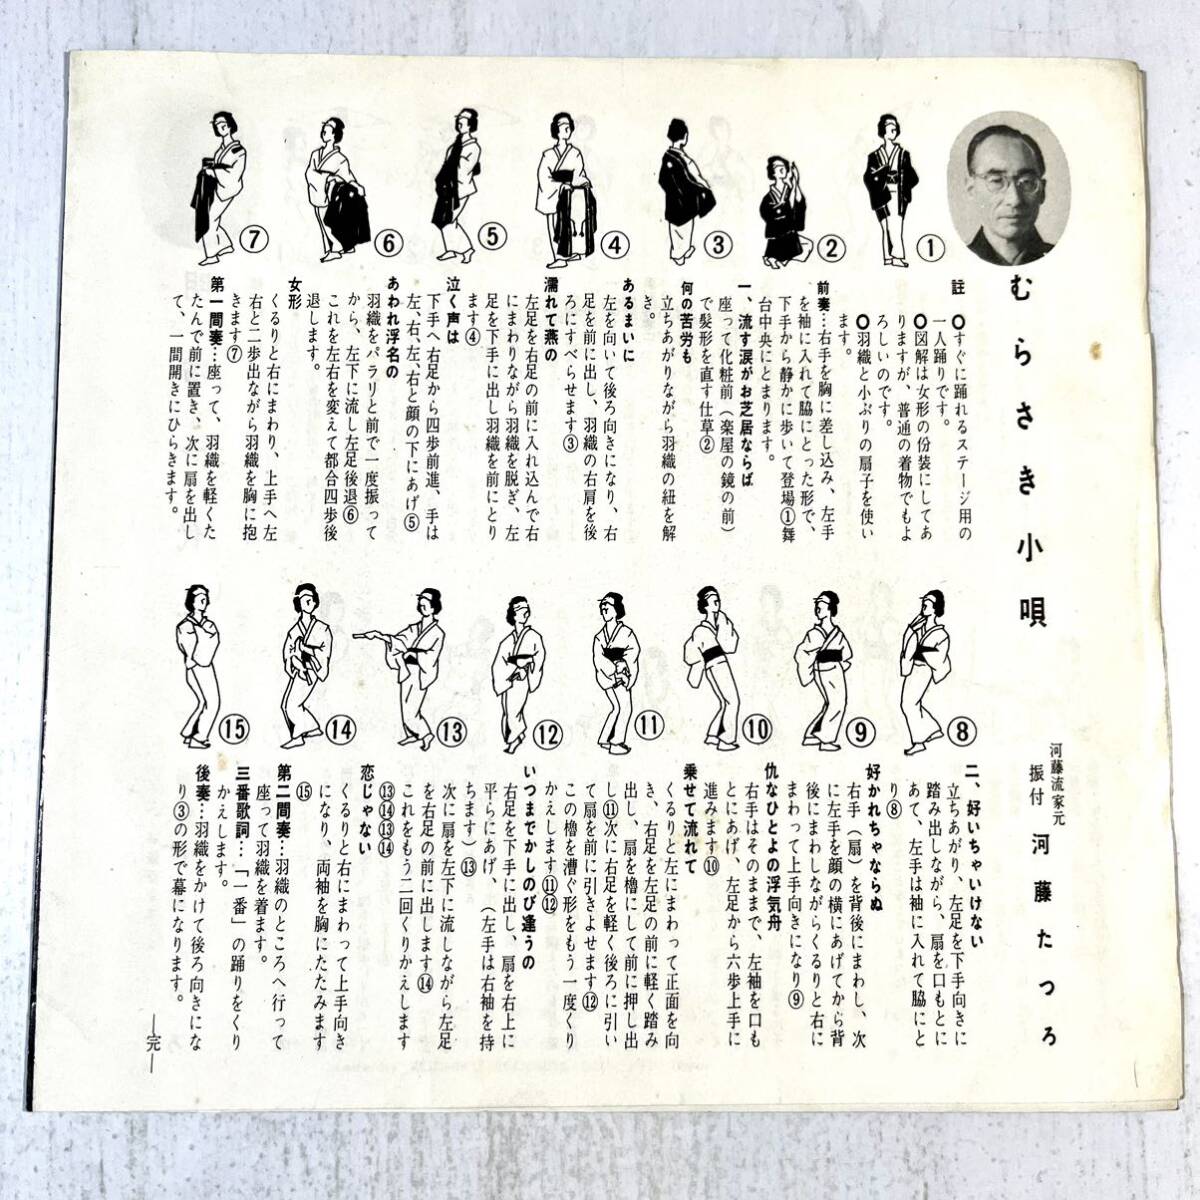 むらさき小唄
河藤流家元
振付 河藤たつろ
註
○すぐに踊れるステージ用の
一人踊りです。
○図解は女形の扮装にしてあ
りますが、普通の着物でもよ
ろしいのです。
○羽織と小ぶりの扇子を使い
ます。
前奏…右手を胸に差し込み、左手
を袖に入れて脇にとった形で、
下手から静かに歩いて登場①舞
台中央にとまります。
一、流す涙がお芝居ならば
座って化粧前（楽屋の鏡の前）
で髪形を直す仕草②
何の苦労も
立ちあがりながら羽織の紐を解
き。
あるまいに
左を向いて後ろ向きになり、右
足を前に出し、羽織の右肩を後
ろにすべらせます③
濡れて燕の
左足を右足の前に入れ込んで右
にまわりながら羽織を脱ぎ、左
足を下手に出し羽織を前にとり
ます④
泣く声は
下手へ右足から四歩前進、手は
左、右、左、右と顔の下にあげ⑤
あわれ浮名の
羽織をパラリと前で一度振って
から、左下に流し左足後退⑥
これを左右を変えて都合四歩後
退します。
女形
くるりと右にまわり、上手へ左
右と二歩出ながら羽織を胸に抱
きます⑦
第一間奏…座って、羽織を軽くた
たんで前に置き、次に扇を出し
て、一間開きにひらきます。
① ② ③ ④ ⑤ ⑥ ⑦
二、好いちゃいけない
立ちあがり、左足を下手向きに
踏み出しながら、扇を口もとに
あて、左手は袖に入れて脇にと
り⑧
好かれちゃならぬ
右手（扇）を背後にまわし、次
に左手を顔の横にあげてから背
後にまわしながらくるりと右に
まわって上手向きになり⑨
仇なひとよの浮気舟
右手はそのままで、左袖を口も
とにあげ、左足から六歩上手に
進みます⑩
乗せて流れて
くるりと左にまわって正面を向
き、右足を左足の前に軽く踏み
出し、扇を櫓にして前に押し出
し⑪次に右足を軽く後ろに引い
て扇を前に引きよせます⑫
この櫓を漕ぐ形をもう一度くり
かえします⑪⑫
いつまでかしのび逢うの
右足を下手に出し、扇を右上に
平らにあげ、（左手は右袖を持
ちます）⑬
次に扇を左下に流しながら左足
を右足の前に出します⑭
これをもう二回くりかえします
⑬⑭⑬⑭
恋じゃない
くるりと右にまわって上手向き
になり、両袖を胸にたたみます
⑮
第二間奏…羽織のところへ行って
座って羽織を着ます。
三番歌詞…「一番」の踊りをくり
かえします。
後奏…羽織をかけて後ろ向きにな
り③の形で幕になります。
―完―
⑧ ⑨ ⑩ ⑪ ⑫ ⑬ ⑭ ⑮